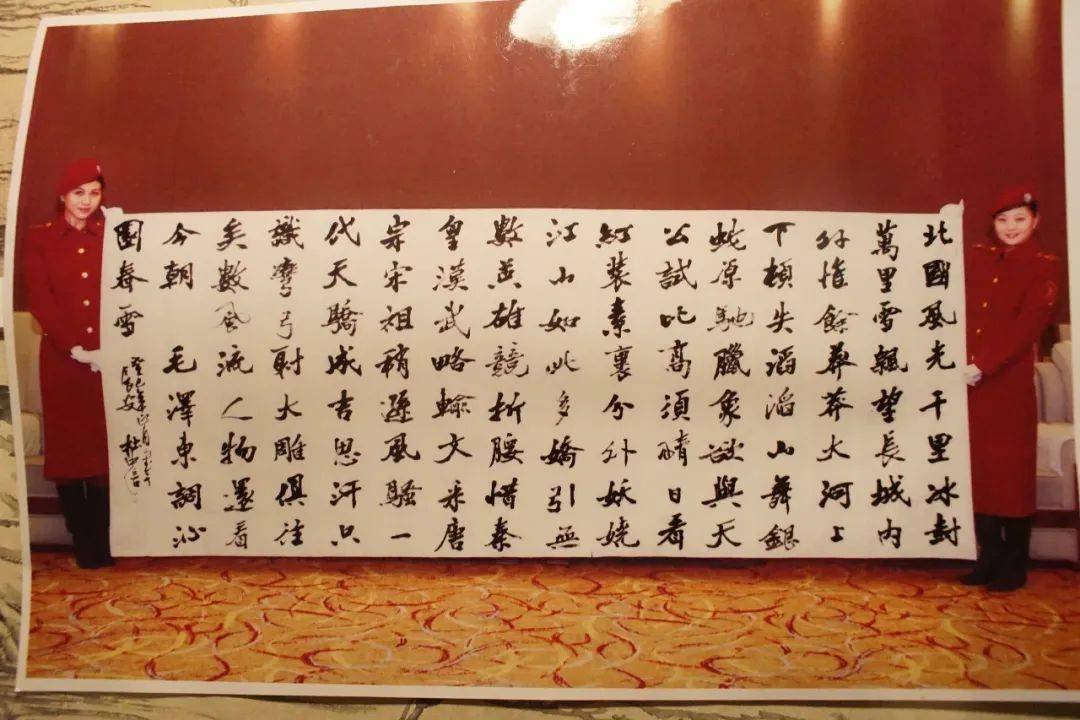 北國風光千里冰封
萬里雪飄望長城內
外惟餘莽莽大河上
下頓失滔滔山舞銀
蛇原馳臘象欲與天
公試比高須晴日看
紅裝素裹分外妖嬈
江山如此多嬌引無
數英雄競折腰惜秦
皇漢武略輸文采唐
宗宋祖稍遜風騷一
代天驕成吉思汗只
識彎弓射大雕俱往
矣數風流人物還看
今朝 毛澤東詞沁
園春雪
癸巳年